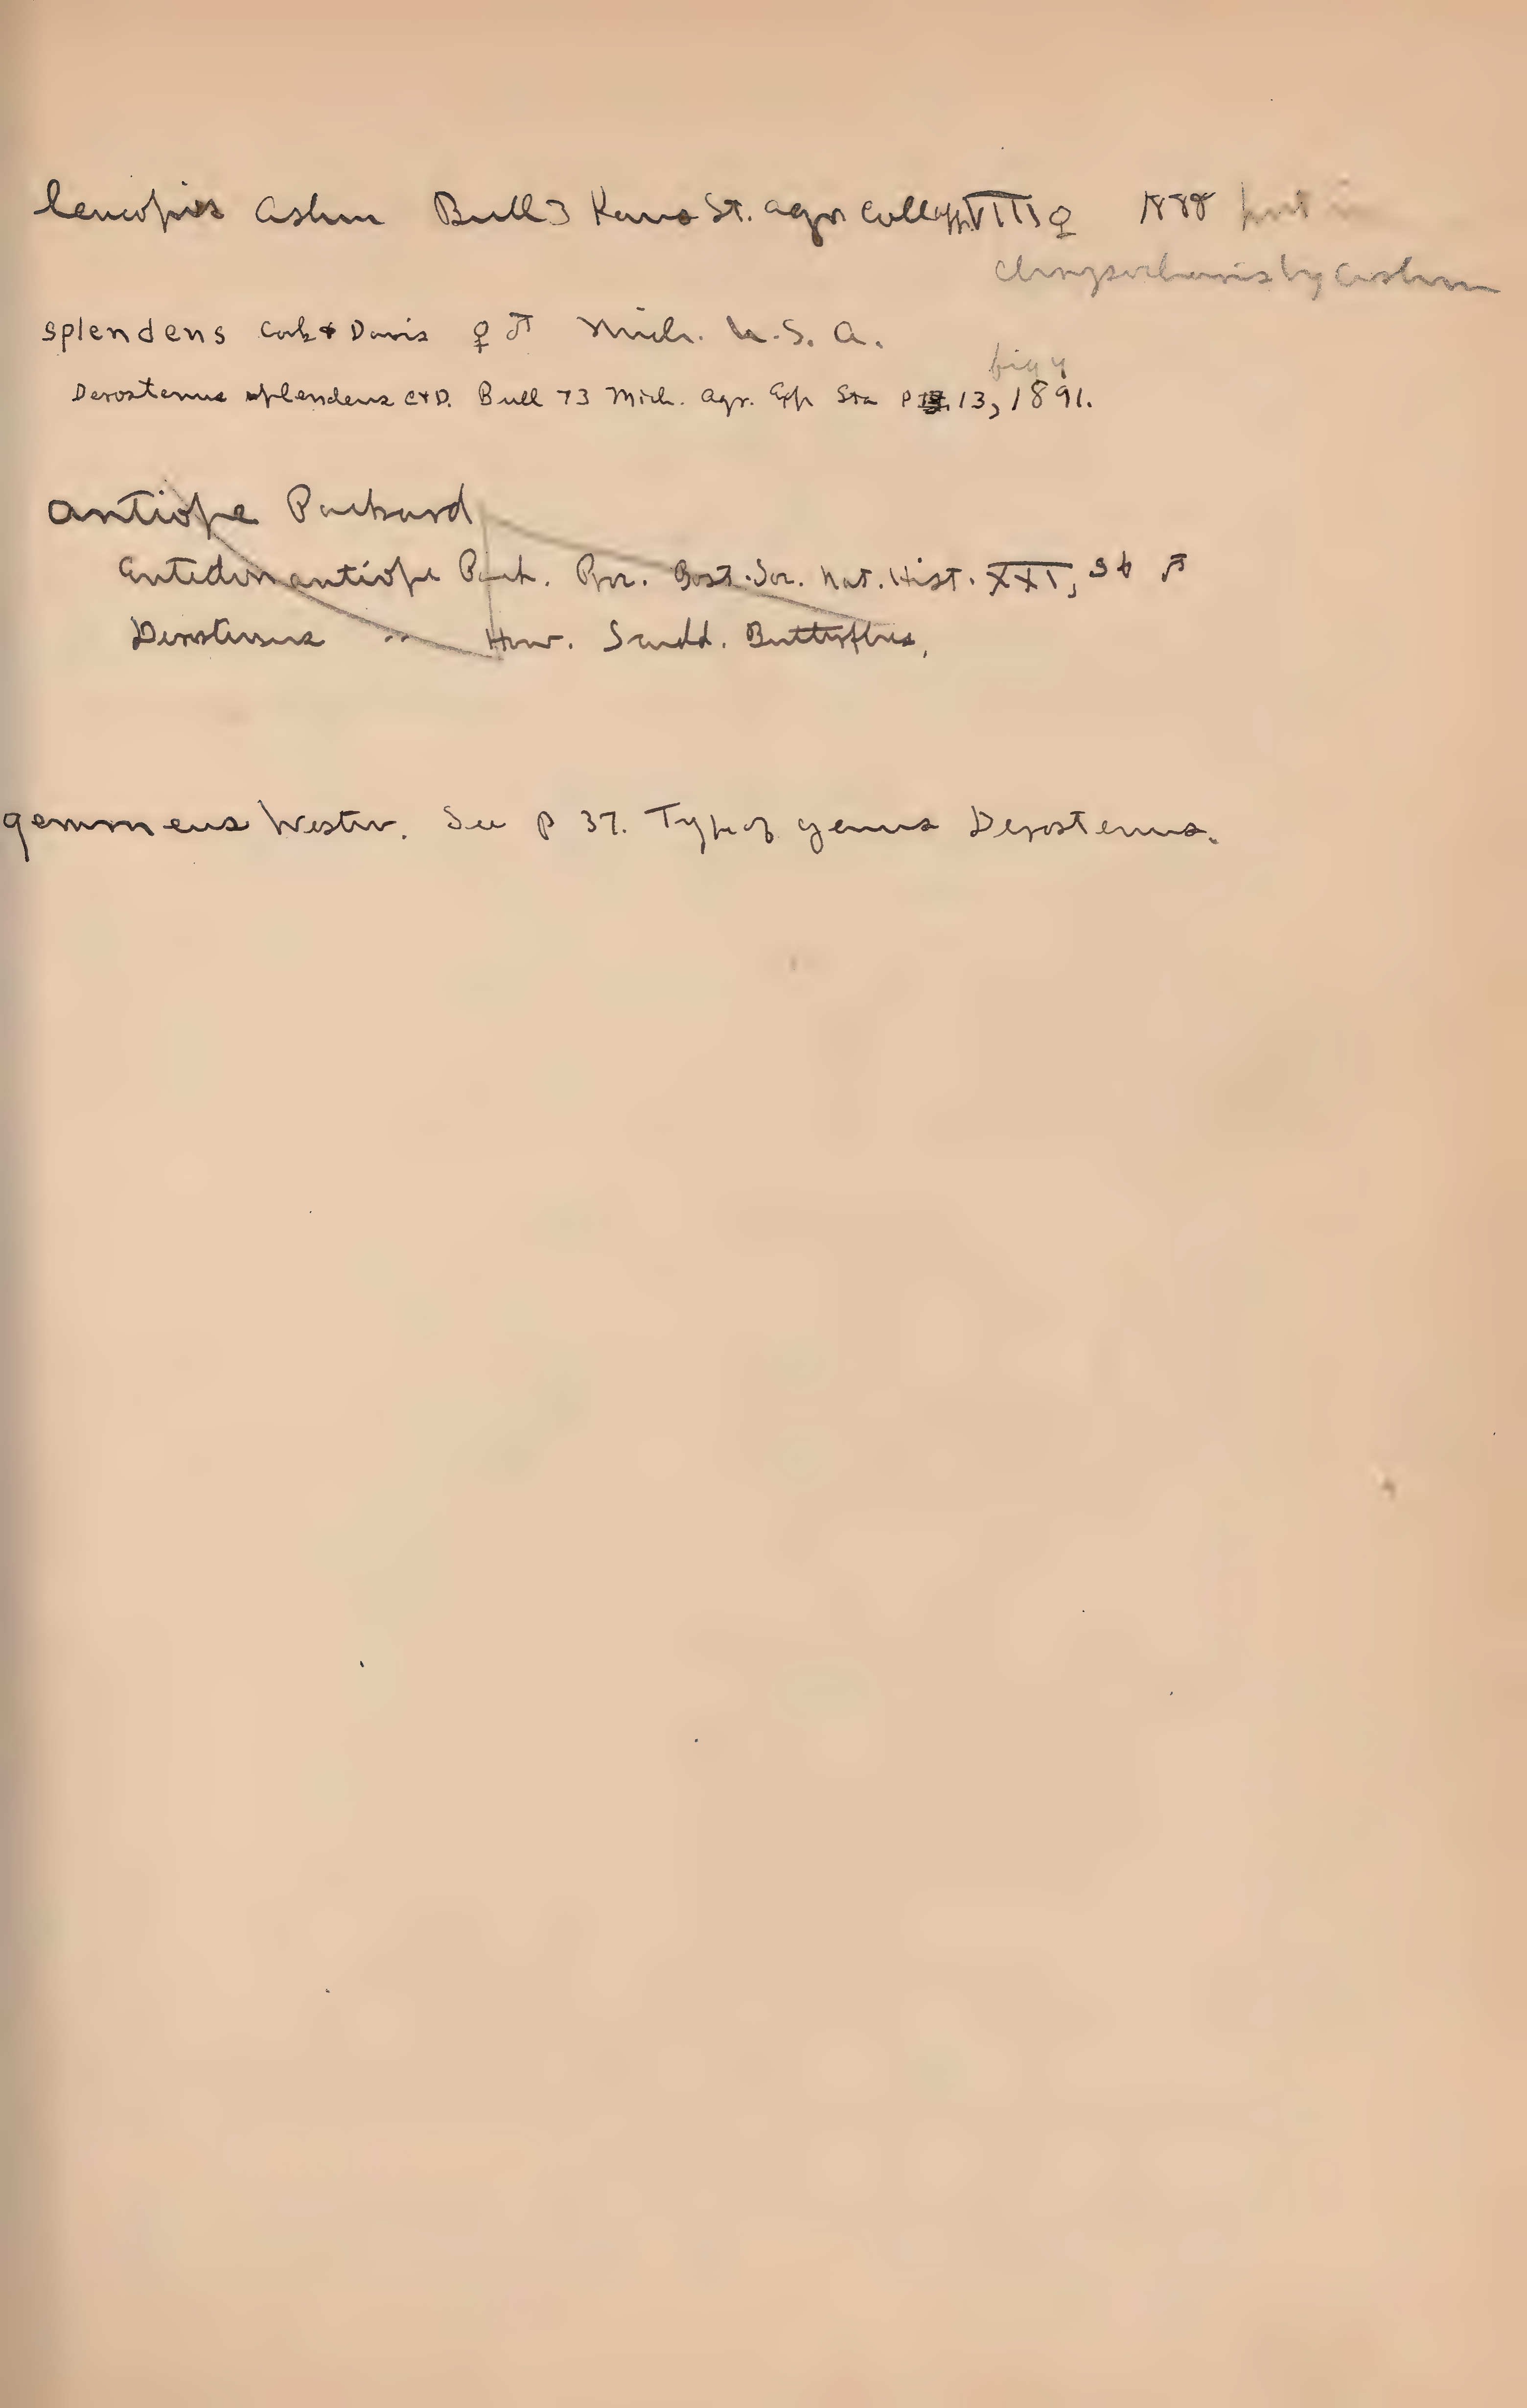 leucopis Ashm Bull 3 Kans St. Agr Coll app VIII ♀ 1888 put in
Chrysocharis by Ashm
splendens Cook & Davis ♀ ♂ Mich. U.S.A.
fig 4
Derostenus splendens C & D. Bull 73 Mich. Agr. Exp Sta p 13, 1891.
antiope Packard
Entedon antiope Pack. Proc. Bost. Soc. Nat. Hist. XXI, 36 ♂
Derostenus " How. Scudd. Butterflies,
gemmeus Westw. See p 37. Type of genus Derostenus.